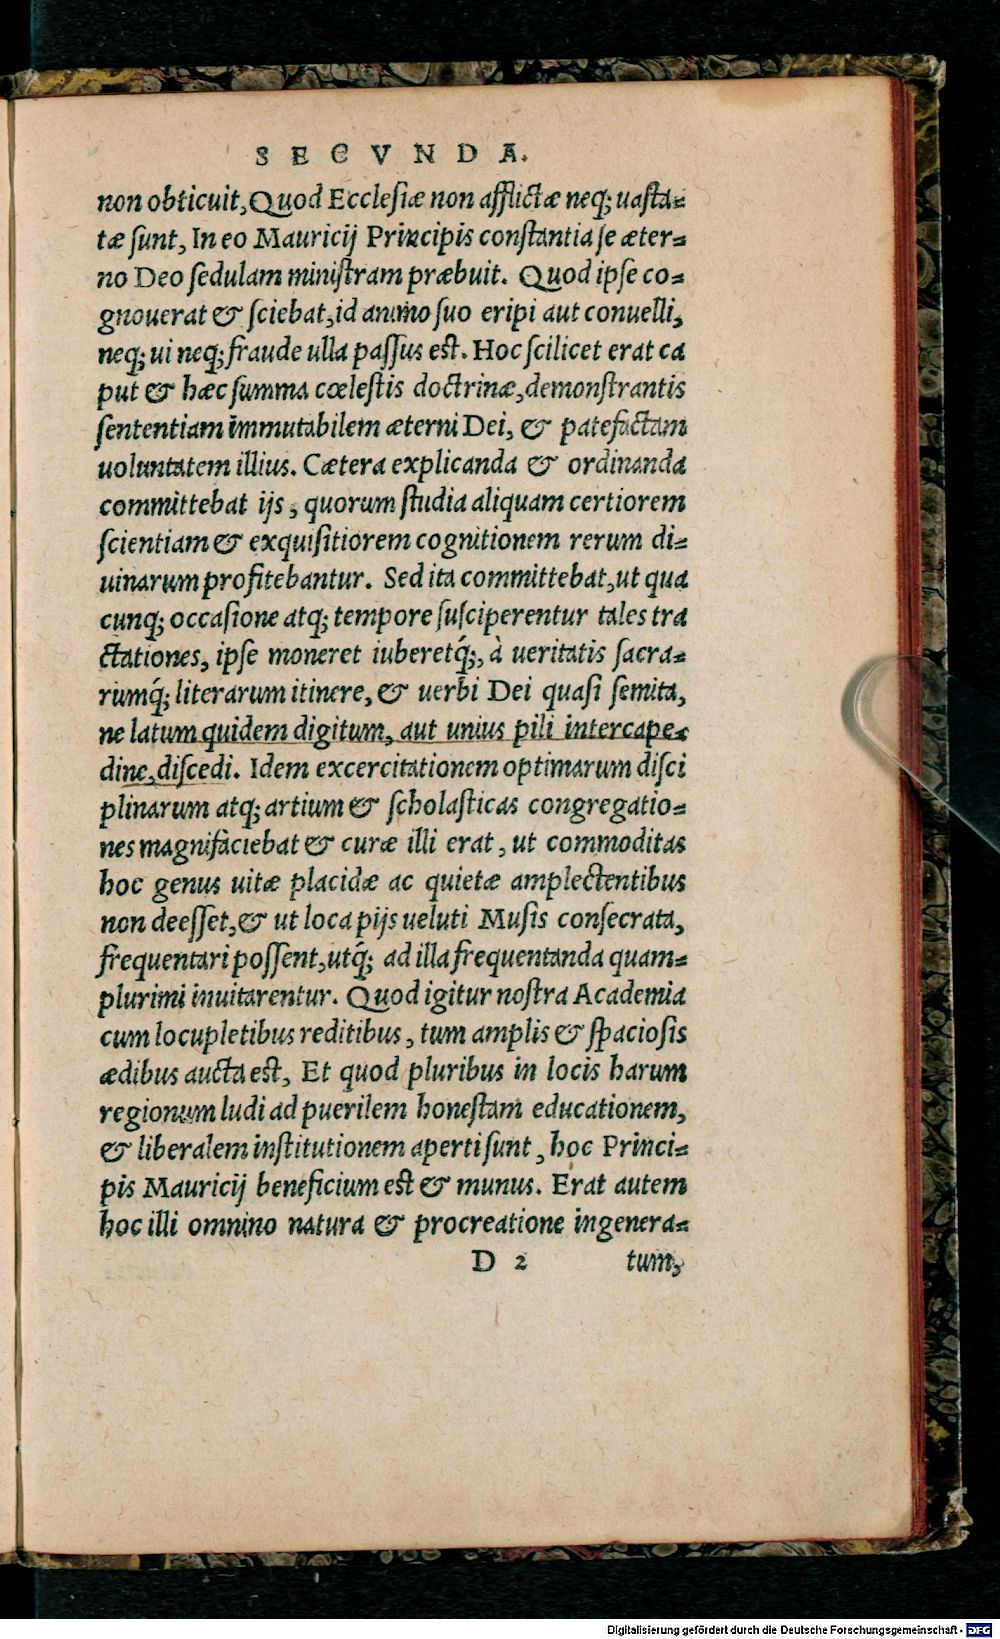 SECVNDA.
non obticuit, Quod Ecclesiæ non afflictæ neq; uasta=
tæ sunt, In eo Mauricij Principis constantia se æter=
no Deo sedulam ministram præbuit. Quod ipse co=
gnouerat & sciebat, id animo suo eripi aut conuelli,
neq; ui neq; fraude ulla passus est. Hoc scilicet erat ca
put & hæc summa cœlestis doctrinæ, demonstrantis
sententiam immutabilem æterni Dei, & patefactam
uoluntatem illius. Cætera explicanda & ordinanda
committebat ijs, quorum studia aliquam certiorem
scientiam & exquisitiorem cognitionem rerum di=
uinarum profitebantur. Sed ita committebat, ut qua
cunq; occasione atq; tempore susciperentur tales tra
ctationes, ipse moneret iuberetq́;, à ueritatis sacra=
rumq́; literarum itinere, & uerbi Dei quasi semita,
ne latum quidem digitum, aut unius pili intercape=
dine, discedi. Idem excercitationem optimarum disci
plinarum atq; artium & scholasticas congregatio=
nes magnifaciebat & curæ illi erat, ut commoditas
hoc genus uitæ placidæ ac quietæ amplectentibus
non deesset, & ut loca pijs ueluti Musis consecrata,
frequentari possent, utq́; ad illa frequentanda quam=
plurimi inuitarentur. Quod igitur nostra Academia
cum locupletibus reditibus, tum amplis & spaciosis
ædibus aucta est, Et quod pluribus in locis harum
regionum ludi ad puerilem honestam educationem,
& liberalem institutionem aperti sunt, hoc Princi=
pis Mauricij beneficium est & munus. Erat autem
hoc illi omnino natura & procreatione ingenera=
D 2 tum,
Digitalisierung gefördert durch die Deutsche Forschungsgemeinschaft - DFG